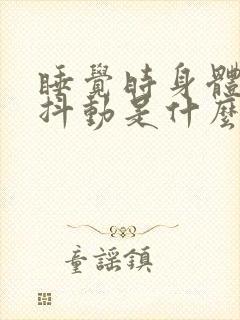 睡覺時身體
抖動是什麼
童謠鎮